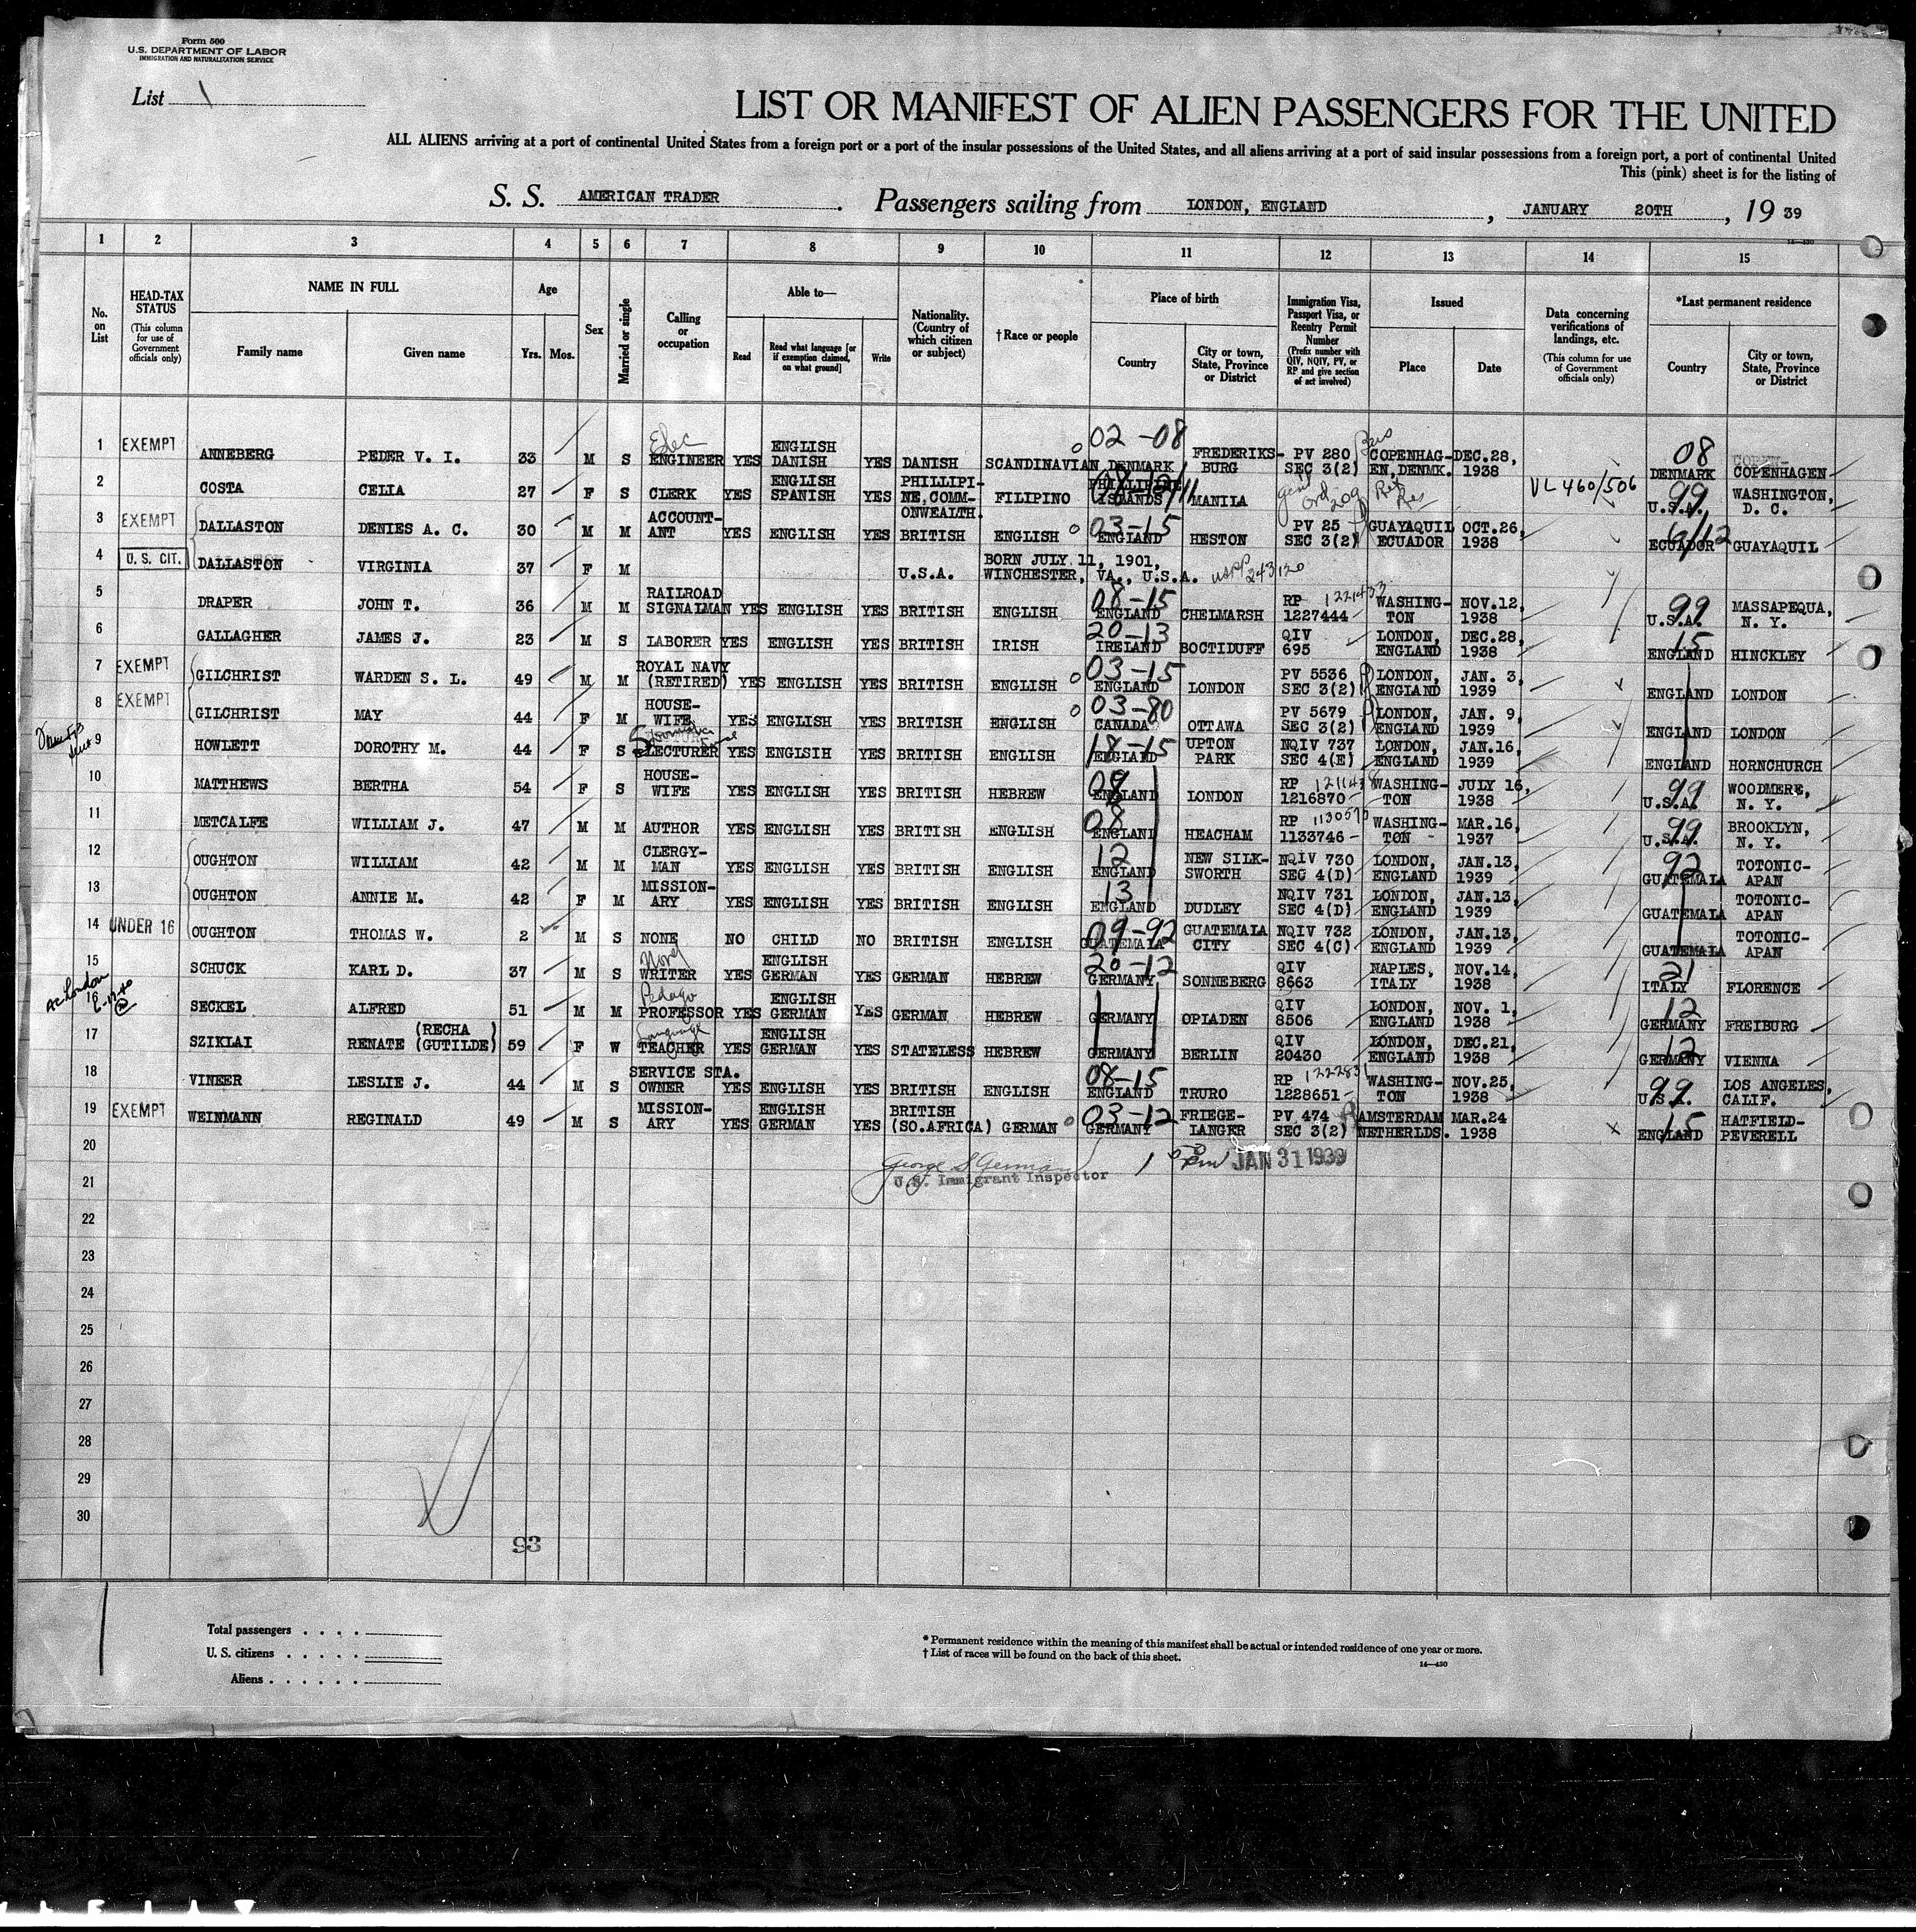 Form 500
U.S. DEPARTMENT OF LABOR
IMMIGRATION AND NATURALIZATION SERVICE
List 1
LIST OR MANIFEST OF ALIEN PASSENGERS FOR THE UNITED
ALL ALIENS arriving at a port of continental United States from a foreign port or a port of the insular possessions of the United States, and all aliens arriving at a port of said insular possessions from a foreign port, a port of continental United
This (pink) sheet is for the listing of
S. S. AMERICAN TRADER . Passengers sailing from LONDON, ENGLAND , JANUARY 20TH , 19 39
1 2 3 4 5 6 7 8 9 10 11 12 13 14 15
No. on List
HEAD-TAX STATUS
(This column for use of Government officials only)
NAME IN FULL
Family name Given name
Age
Yrs. Mos.
Sex
Married or single
Calling or occupation
Able to—
Read Read what language [or if exemption claimed, on what ground] Write
Nationality. (Country of which citizen or subject)
†Race or people
Place of birth
Country City or town, State, Province or District
Immigration Visa, Passport Visa, or Reentry Permit Number
(Prefix number with QIV, NQIV, PV, or RP and give section of act involved)
Issued
Place Date
Data concerning verifications of landings, etc.
(This column for use of Government officials only)
*Last permanent residence
Country City or town, State, Province or District
1 EXEMPT ANNEBERG PEDER V. I. 33 M S Elec ENGINEER YES ENGLISH DANISH YES DANISH SCANDINAVIAN 02-08 DENMARK FREDERIKS-BURG PV 280 SEC 3(2) COPENHAG-EN, DENMK. DEC.28, 1938 08 DENMARK COPENHAGEN
2 COSTA CELIA 27 F S CLERK YES ENGLISH SPANISH YES PHILLIPI-NE, COMM-ONWEALTH. FILIPINO PHILLIPINE ISLANDS MANILA VL 460/506 99 U.S.A. WASHINGTON, D. C.
3 EXEMPT DALLASTON DENIES A. C. 30 M M ACCOUNT-ANT YES ENGLISH YES BRITISH ENGLISH 03-15 ENGLAND HESTON PV 25 SEC 3(2) GUAYAQUIL ECUADOR OCT.26, 1938 ECUADOR GUAYAQUIL
4 U. S. CIT. DALLASTON VIRGINIA 37 F M U.S.A. BORN JULY 11, 1901, WINCHESTER, VA., U.S.A. USPP 243120
5 DRAPER JOHN T. 36 M M RAILROAD SIGNALMAN YES ENGLISH YES BRITISH ENGLISH 08-15 ENGLAND CHELMARSH RP 1221433 1227444 WASHING-TON NOV.12, 1938 99 U.S.A. MASSAPEQUA, N. Y.
6 GALLAGHER JAMES J. 23 M S LABORER YES ENGLISH YES BRITISH IRISH 20-13 IRELAND BOCTIDUFF QIV 695 LONDON, ENGLAND DEC.28, 1938 15 ENGLAND HINCKLEY
7 EXEMPT GILCHRIST WARDEN S. L. 49 M M ROYAL NAVY (RETIRED) YES ENGLISH YES BRITISH ENGLISH 03-15 ENGLAND LONDON PV 5536 SEC 3(2) LONDON, ENGLAND JAN. 3, 1939 ENGLAND LONDON
8 EXEMPT GILCHRIST MAY 44 F M HOUSE-WIFE YES ENGLISH YES BRITISH ENGLISH 03-80 CANADA OTTAWA PV 5679 SEC 3(2) LONDON, ENGLAND JAN. 9, 1939 ENGLAND LONDON
9 HOWLETT DOROTHY M. 44 F S LECTURER YES ENGLSIH YES BRITISH ENGLISH 18-15 ENGLAND UPTON PARK NQIV 737 SEC 4(E) LONDON, ENGLAND JAN.16, 1939 ENGLAND HORNCHURCH
10 MATTHEWS BERTHA 54 F S HOUSE-WIFE YES ENGLISH YES BRITISH HEBREW 08 ENGLAND LONDON RP 1216870 WASHING-TON JULY 16, 1938 99 U.S.A. WOODMERE, N. Y.
11 METCALFE WILLIAM J. 47 M M AUTHOR YES ENGLISH YES BRITISH ENGLISH 08 ENGLAND HEACHAM RP 1133746 WASHING-TON MAR.16, 1937 99 U.S.A. BROOKLYN, N. Y.
12 OUGHTON WILLIAM 42 M M CLERGY-MAN YES ENGLISH YES BRITISH ENGLISH 12 ENGLAND NEW SILK-SWORTH NQIV 730 SEC 4(D) LONDON, ENGLAND JAN.13, 1939 92 GUATEMALA TOTONIC-APAN
13 OUGHTON ANNIE M. 42 F M MISSION-ARY YES ENGLISH YES BRITISH ENGLISH 13 ENGLAND DUDLEY NQIV 731 SEC 4(D) LONDON, ENGLAND JAN.13, 1939 GUATEMALA TOTONIC-APAN
14 UNDER 16 OUGHTON THOMAS W. 2 M S NONE NO CHILD NO BRITISH ENGLISH 09-92 GUATEMALA GUATEMALA CITY NQIV 732 SEC 4(C) LONDON, ENGLAND JAN.13, 1939 GUATEMALA TOTONIC-APAN
15 SCHUCK KARL D. 37 M S Novel WRITER YES ENGLISH GERMAN YES GERMAN HEBREW 20-12 GERMANY SONNEBERG QIV 8663 NAPLES, ITALY NOV.14, 1938 21 ITALY FLORENCE
16 SECKEL ALFRED 51 M M Pedago PROFESSOR YES ENGLISH GERMAN YES GERMAN HEBREW GERMANY OPLADEN QIV 8506 LONDON, ENGLAND NOV. 1, 1938 12 GERMANY FREIBURG
17 SZIKLAI RENATE (RECHA) (GUTILDE) 59 F W Language TEACHER YES ENGLISH GERMAN YES STATELESS HEBREW GERMANY BERLIN QIV 20430 LONDON, ENGLAND DEC.21, 1938 12 GERMANY VIENNA
18 VINEER LESLIE J. 44 M S SERVICE STA. OWNER YES ENGLISH YES BRITISH ENGLISH 08-15 ENGLAND TRURO RP 1228651 WASHING-TON NOV.25, 1938 99 U.S.A. LOS ANGELES, CALIF.
19 EXEMPT WEINMANN REGINALD 49 M S MISSION-ARY YES ENGLISH GERMAN YES BRITISH (SO.AFRICA) GERMAN 03-12 GERMANY FRIEGE-LANGER PV 474 SEC 3(2) AMSTERDAM NETHERLDS. MAR.24 1938 15 ENGLAND HATFIELD-PEVERELL
20
JAN 31 1939
21 U.S. Immigrant Inspector
22
23
24
25
26
27
28
29
30
93
Total passengers . . . .
U. S. citizens . . . . .
Aliens . . . . . .
* Permanent residence within the meaning of this manifest shall be actual or intended residence of one year or more.
† List of races will be found on the back of this sheet.
14—430